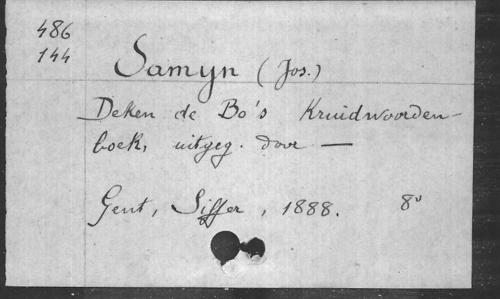 486
144
Samyn (Jos.)
Deken de Bo's Kruidwoorden-
boek, uitgeg. door —
Gent, Siffer, 1888. 8°